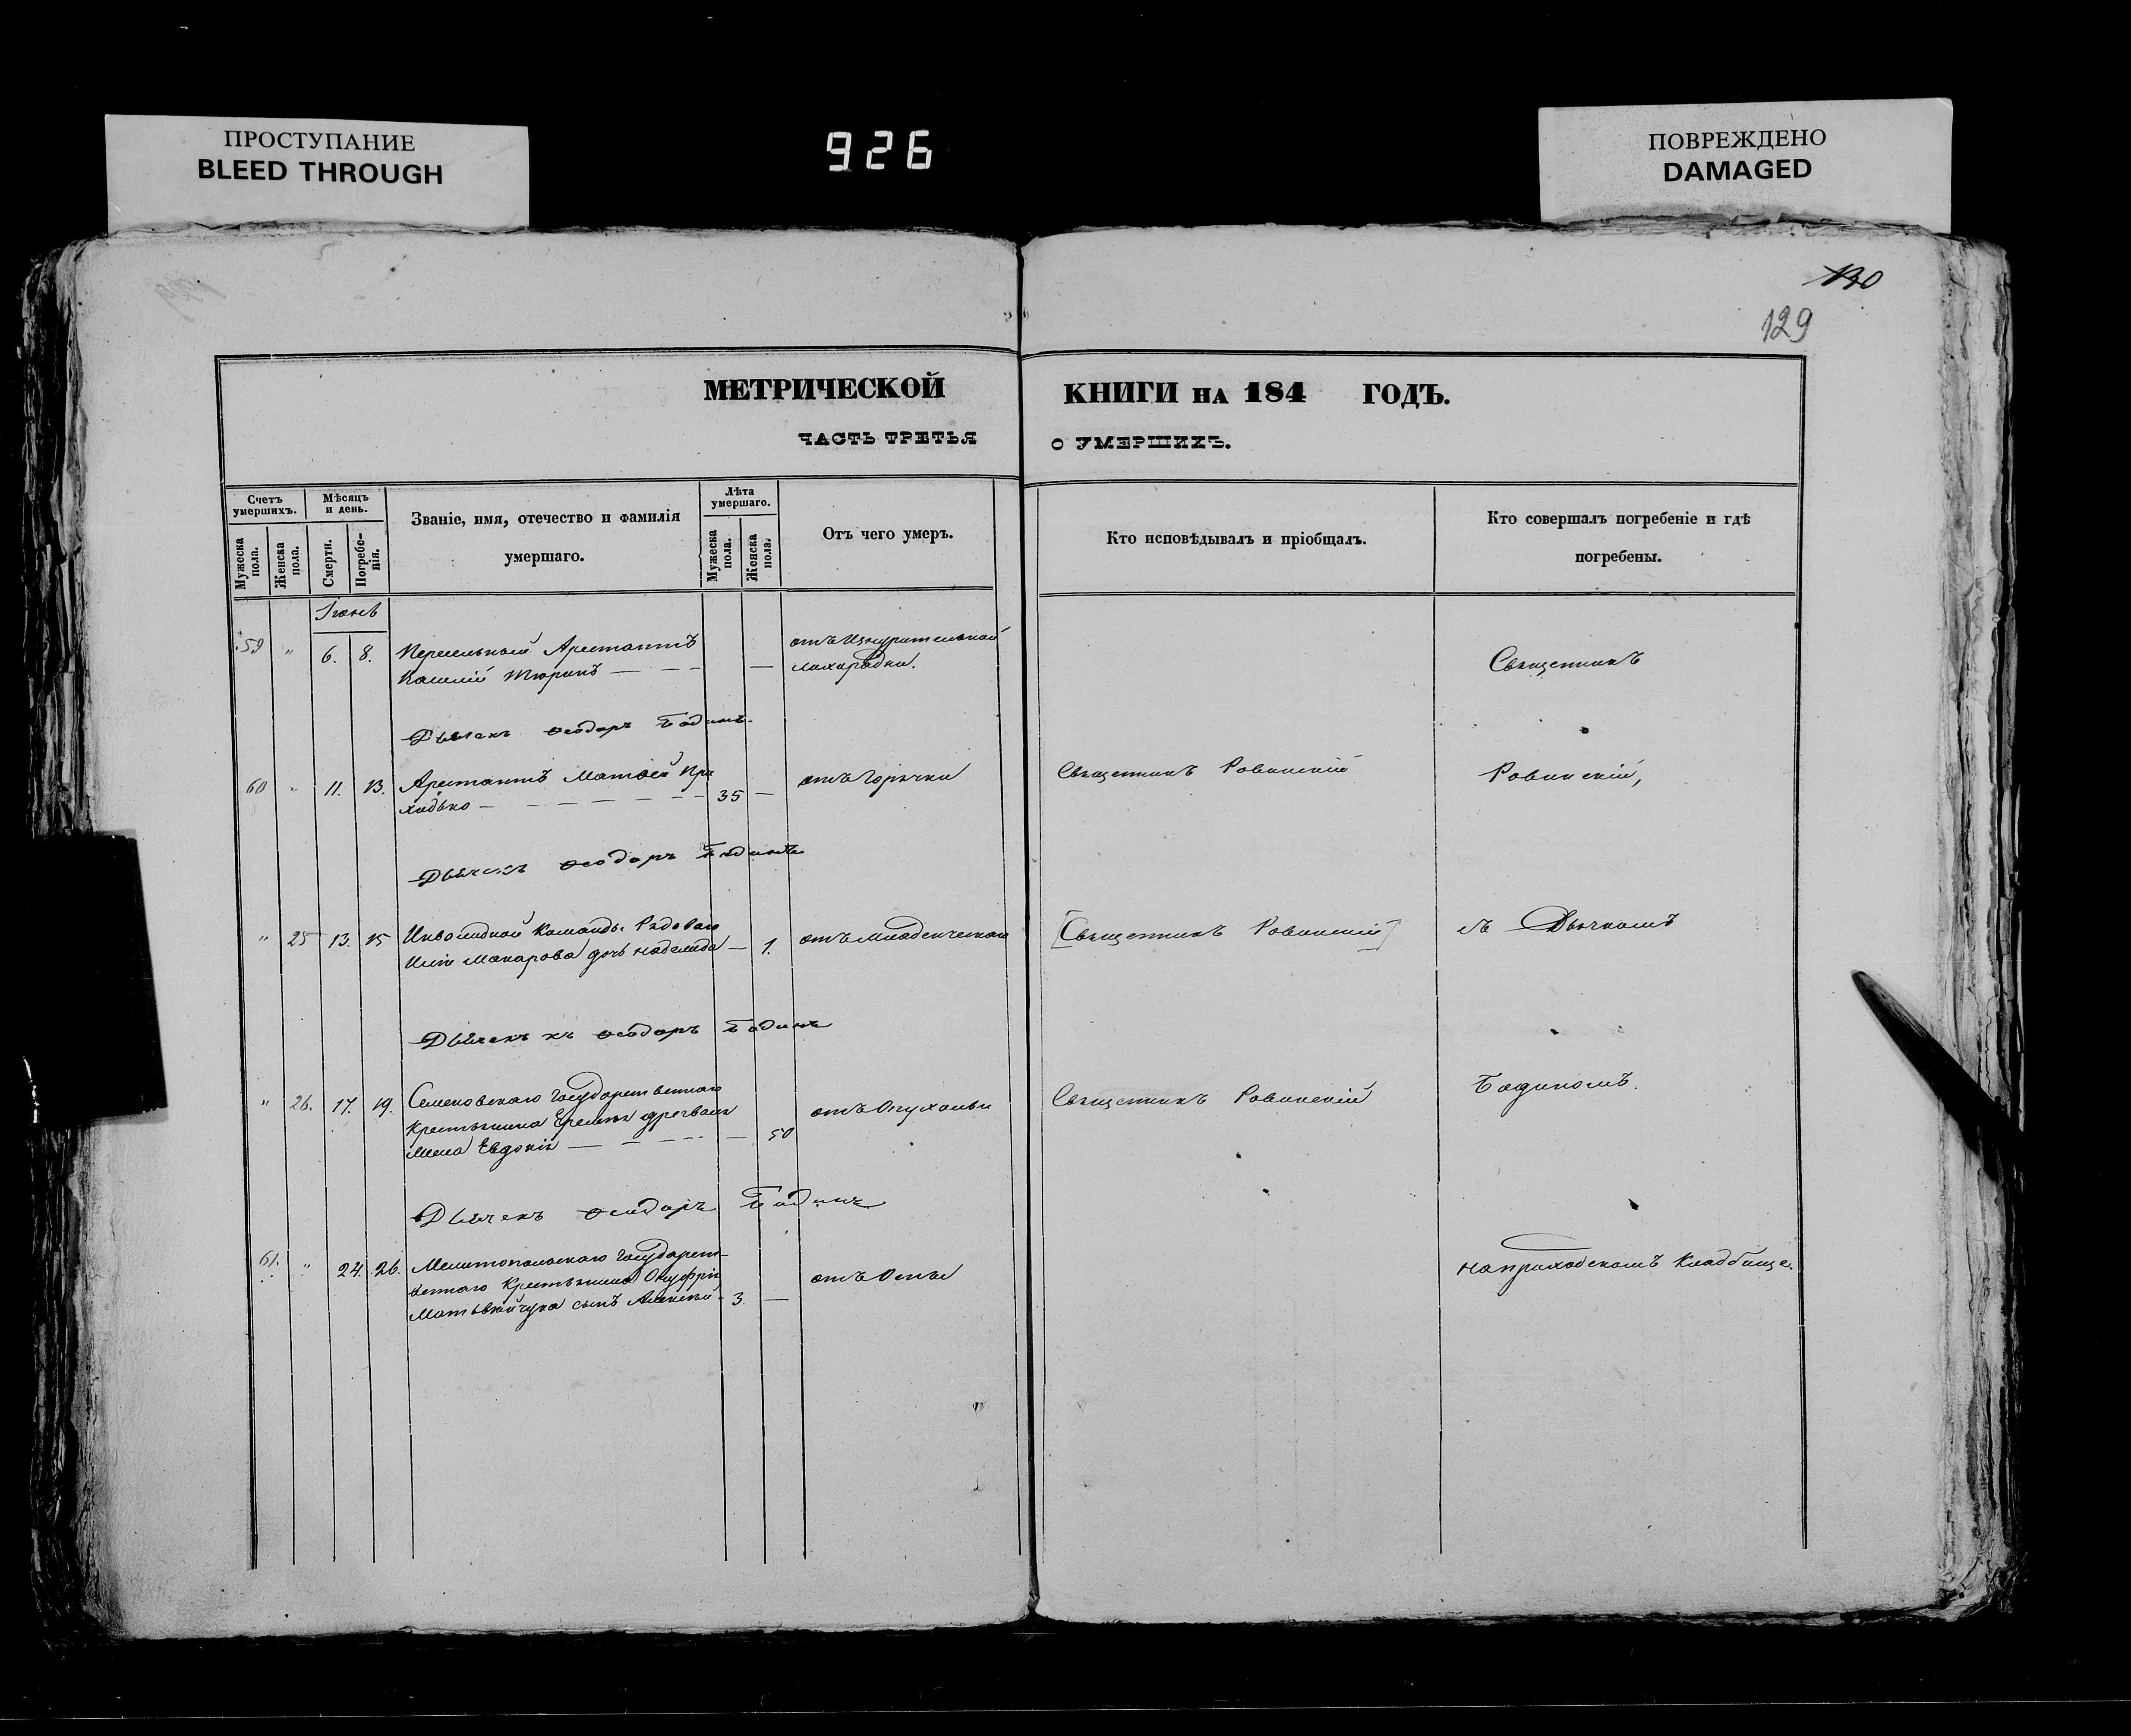 ПРОСТУПАНИЕ
BLEED THROUGH
926
ПОВРЕЖДЕНО
DAMAGED
130
129
МЕТРИЧЕСКОЙ КНИГИ НА 184 ГОДЪ.
ЧАСТЬ ТРЕТЬЯ О УМЕРШИХЪ.
Счетъ умершихъ.
Мужеска пола.
Женска пола.
Мѣсяцъ и день.
Смерти.
Погребенія.
Званіе, имя, отечество и фамилія
умершаго.
Лѣта умершаго.
Мужеска пола.
Женска пола.
Отъ чего умеръ.
Кто исповѣдывалъ и пріобщалъ.
Кто совершалъ погребеніе и гдѣ
погребены.
59 " 6. 8. Арестантъ
Тюринъ — — — —
отъ Изнурительной
лихорадки.
Священникъ
Дьячекъ Ѳеодоръ Бодинъ
60 " 11. 13. Арестантъ Матѳей При
ходько — — — — — — 35 —
отъ Горячки
Священникъ Ровинскій
Ровинскій,
Дьячекъ Ѳеодоръ Бодинъ
" 25 13. 15 Инвалидной Команды Рядоваго
Макарова дочь — 1.
отъ Младенческой
[Священникъ Ровинскій]
съ Дьячкомъ
Дьячекъ Ѳеодоръ Бодинъ
" 26. 17. 19. Семеновскаго Государственнаго
Крестьянина
жена Евдокія — — — — — 50
отъ Опухоли
Священникъ Ровинскій
Бодиномъ.
Дьячекъ Ѳеодоръ Бодинъ
61. " 24. 26. Мелитопольскаго Государст-
веннаго Крестьянина Онуфрія
Матвѣйчука сынъ Алексѣй - 3 —
отъ Оспы
на приходскомъ Кладбище.